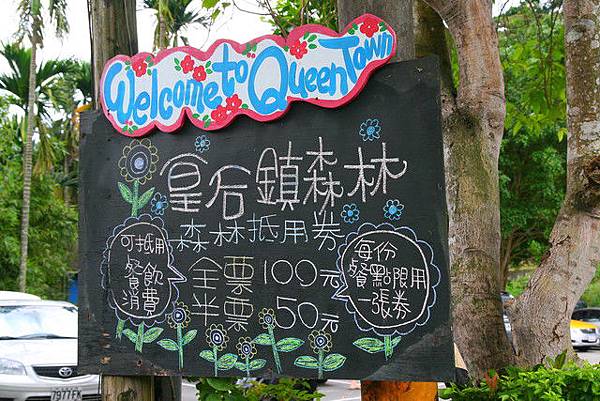 Welcome to Queen Town
皇后鎮森林
森林抵用券
全票100元
半票50元
可抵用
餐飲
消費
每份
餐點限用
一張券